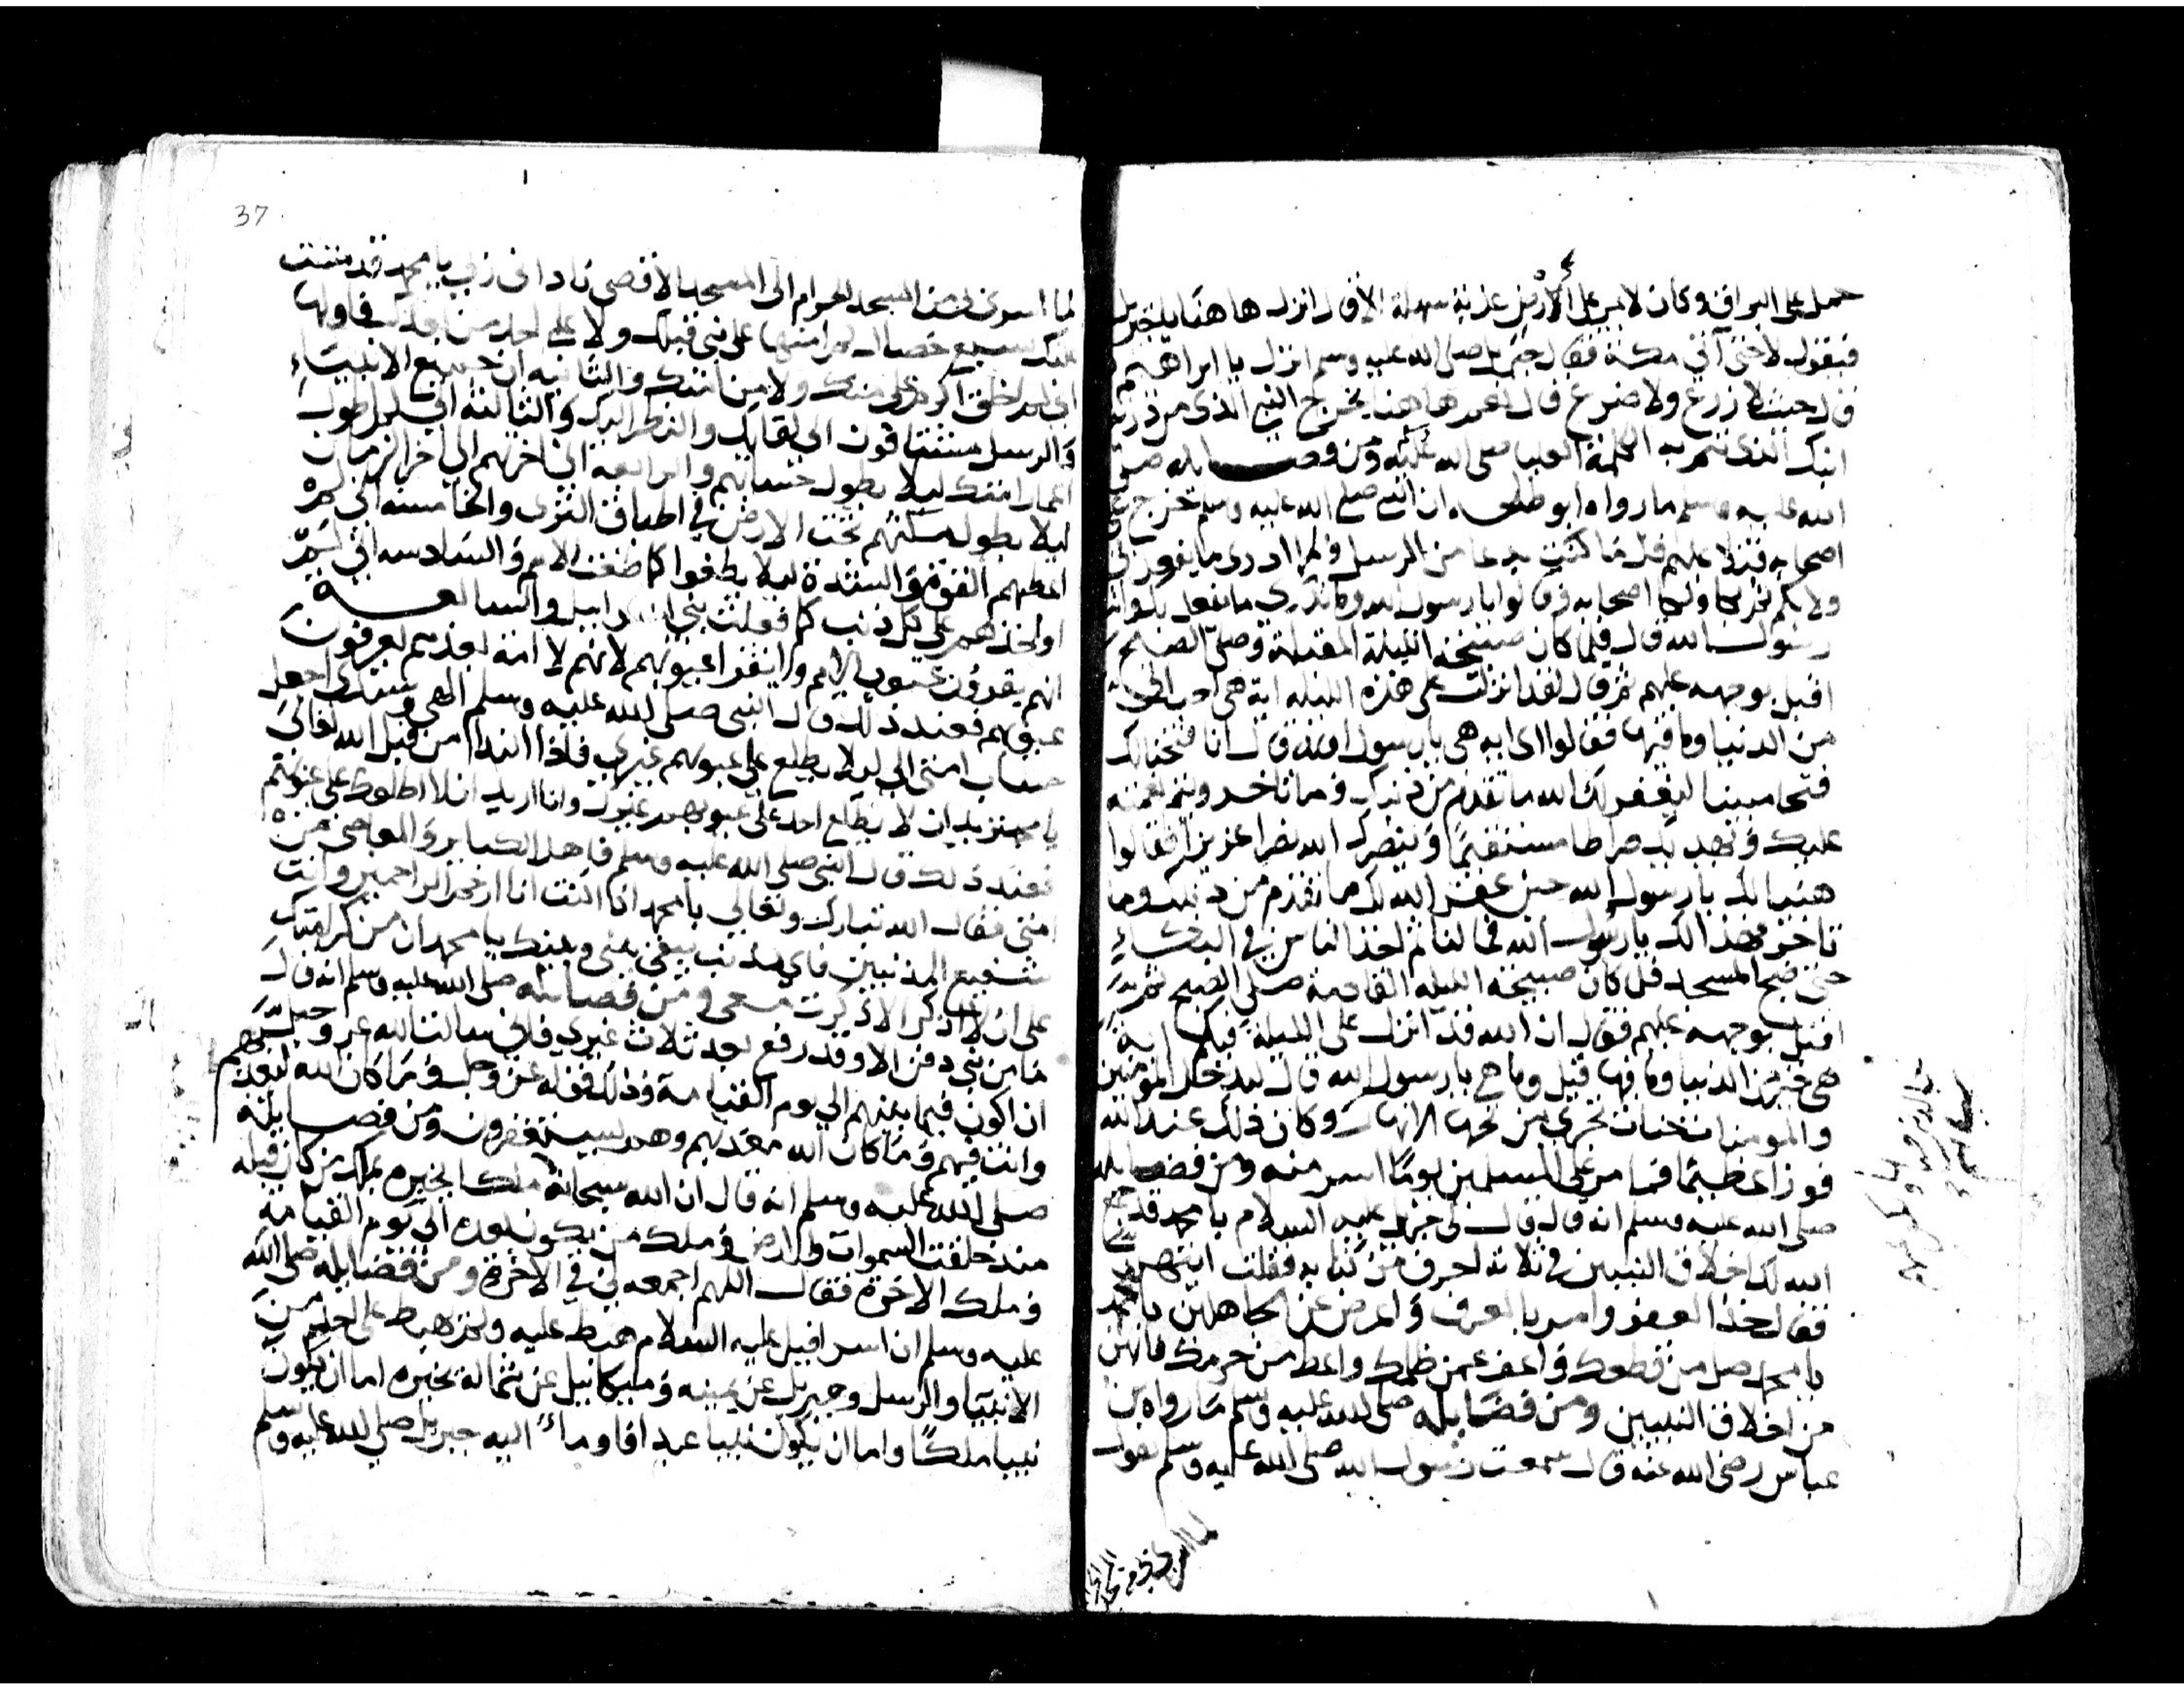 حمل على البراق وكان لا يمر على الارض عذبة سهلة الا قال انزل هاهنا يا جبريل
فيقول لا حتى أتى مكة فقال جبريل صلى الله عليه وسلم انزل يا ابراهيم
قال حيث لا زرع ولا ضرع قال نعم هاهنا يخرج النبي الذي من ذرية
ابنك الذي تتم به الكلمة العليا صلى الله عليه ومن فضايله صلى
الله عليه وسلم ما رواه ابو ان النبي صلى الله عليه وسلم خرج على
اصحابه فتلا عليهم قل ما كنت بدعا من الرسل وما ادرى ما يفعل بى
ولا بكم اصحابه وقالوا يا رسول الله وما تدرى ما يفعل بك وانت
رسول الله قال فلما كان صبيحة الليلة المقبلة وصلى الصبح
اقبل بوجهه عليهم ثم قال لقد انزلت على هذه الليلة اية هي احب الي
من الدنيا وما فيها فقالوا اى ايه هي يا رسول الله قال انا فتحنا لك
فتحا مبينا ليغفر لك الله ما تقدم من ذنبك وما تاخر ويتم نعمته
عليك ويهديك صراطا مستقيما وينصرك الله نصرا عزيزا فقالوا
هنيا لك يا رسول الله حين غفر الله لك ما تقدم من ذنبك وما
تاخر فهذا لك يا رسول الله فما لنا ثم اخذ الناس في البكاء
حتى ضج المسجد فلما كان صبيحة الليلة القادمة صلى الصبح ثم
اقبل بوجهه عليهم فقال ان الله قد انزل على الليلة فيكم اية
هي خير من الدنيا وما فيها قيل وما هي يا رسول الله قال ليدخل المومنين
والمومنات جنات تجري من تحتها الانهار وكان ذلك عند الله
فوزا عظيما فما مر على المسلمين يوما اسر منه ومن فضايله
صلى الله عليه وسلم انه قال قال لى جبريل عليه السلام يا محمد قد جمع
الله لك اخلاق النبيين في ثلاثة احرف من كتابه فقلت ايتهن
فقال خذ العفو وامر بالعرف واعرض عن الجاهلين يا محمد
يا محمد صل من قطعك واعف عمن ظلمك واعط من حرمك فانهن
من اخلاق النبيين ومن فضايله صلى الله عليه وسلم ما رواه بن
عباس رضي الله عنه قال سمعت رسول الله صلى الله عليه وسلم يقول
37
لما اسرى بى من المسجد الحرام الى المسجد الاقصى ناداني ربي يا محمد قد مننت
عليك بسبع خصال لم امنن بها على نبي قبلك ولا على احد من بعدك فاولها
انى لم اخلق اكرم على منك ولا من امتك والثانيه ان جميع الانبياء
والرسل مشتاقون الى لقايك والنظر اليك والثالثة اني لم اطول
اعمار امتك ليلا يطول حسابهم والرابعة اني اخرتهم الى اخر الزمان
ليلا يطول مسكنهم تحت الارض في اطباق الثرى والخامسه اني لم
اعطهم القوة والشدة ليلا يطغوا كما طغت الامم والسادسه اني لم
اواخذهم على كل ذنب كما فعلت ببني اسرايل والسابعة
انهم يقرؤن عيوب الامم ولا يقرا عيوبهم لانهم لا امة بعدهم يعرفون
عيوبهم فعند ذلك قال النبي صلى الله عليه وسلم الهي وسيدى اجعل
حساب امتى الى ليلا يطلع على عيوبهم غيرى فاذا النداء من قبل الله تعالى
يا محمد تريد ان لا يطلع احد على عيوبهم غيرك وانا اريد ان لا اطلعك على عيوبهم
فعند ذلك قال النبى صلى الله عليه وسلم فاهل الكباير والمعاصي من
امتى فقال الله تبارك وتعالى يا محمد انا انا ارحم الراحمين وانت
شفيع المذنبين فاي ذنب يبقى بينى وبينك يا محمد ان من كرامتك
على ان لا اذكر الا ذكرت معي ومن فضايله صلى الله عليه وسلم انه قال
ما من نبي دفن الا وقد رفع بعد ثلاث غيري فاني سالت الله عز وجل
ان اكون فيما بينهم الى يوم القيامة وذلك قوله عز وجل وما كان الله ليعذبهم
وانت فيهم وما كان الله معذبهم وهم يستغفرون ومن فضايله
صلى الله عليه وسلم انه قال ان الله سبحانه ملك من كان قبله
منذ خلقت السموات والارض وملك من يكون بعده الى يوم القيامة
وملك الاخرة فقال اللهم اجمعه لي في الاخرة ومن فضايله صلى الله
عليه وسلم ان اسرافيل عليه السلام هبط عليه ولم يهبط على احد من
الانبيا والرسل وجبريل عن يمينه وميكائيل عن شماله يخيره اما ان يكون
نبيا ملكا واما ان يكون نبيا عبدا فاوما اليه جبريل صلى الله عليه وسلم